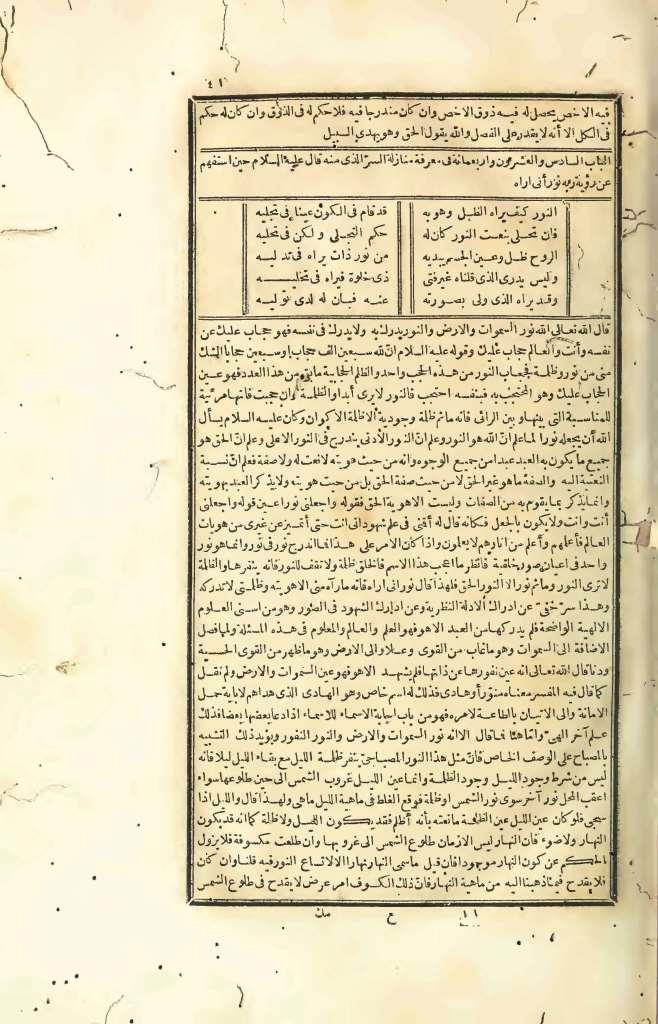 ٤١
فيه الاخص يحصل له فيه ذوق الاخص وان كان مندرجا فيه فلا حكم له فى الذوق وان كان له حكم
فى الكل الا أنه لا يقدر على الفصل والله يقول الحق وهو يهدى السبيل
الباب السادس والعشرون واربعمائة فى معرفة منازلة السر الذى منه قال عليه السلام حين استفهم
عن رؤية ربه نور أنى اراه
النور كيف يراه الظل وهو به قد قام فى الكون عينا فى تجليه
فان تجلى بنعت النور كان له حكم التجلى ولكن فى تجليه
الروح ظل وعين الجسم يبديه من نور ذات يراه فى تدليه
وليس يدرى الذى قلناه غير فتى ذى خلوة فيراه فى تخليه
وقد يراه الذى ولى بصورته عنه فبان له لدى توليه
قال الله تعالى الله نور السموات والارض والنور يدرك به ولا يدرك فى نفسه فهو حجاب عليك عن
نفسه وأنت والعالم حجاب عليك وقوله عليه السلام ان لله سبعين الف حجاب او سبعين حجابا الشك
منى من نور وظلمة فحجاب النور من هذه الحجب واحد والظلم الحجابية ما بقى من هذا العدد فهو عين
الحجاب عليك وهو المحتجب به فبنفسه احتجب فالنور لا يرى أبدا والظلمة وان حجبت فانها مرئية
للمناسبة التى بينها وبين الرائى فانه ما ثم ظلمة وجودية الا ظلمة الاكوان وكان عليه السلام يسأل
الله أن يجعله نورا لما علم انّ الله هو النور وعلم انّ النور الأدنى يندرج فى النور الاعلى وعلم انّ الحق هو
جميع ما يكون به العبد عبدا من جميع الوجوه وانه من حيث هويته لا نعت له ولا صفة فعلم انّ نسبة
النعتية اليه والصفة ما هو غير الحق لا من حيث صفة الحق بل من حيث هويته ولا يذكر العبد بهويته
وانما يذكر بما يقوم به من الصفات وليست الا هوية الحق فقوله واجعلنى نورا عين قوله واجعلنى
أنت وانت ولا يكون بالجعل فكانه قال له أقمنى فى علم شهود انى انت حتى أتميز عن غيرى من هويات
العالم فأعلمهم وأعلم من انارهم لا يعلمون واذا كان الامر على هذا فما اندرج نور فى نور وانما هو نور
واحد فى اعيان صور خلقية فانظر ما اعجب هذا الاسم فالخلق ظلمة ولا تقف للنور فانه ينفرها والظلمة
لا ترى النور وما ثم نور الا النور الحق فلهذا قال نورانى اراه فانه ما رآه منى الا هويته وظلمتى لا تدركه
وهذا سر خفى عن ادراك الادلة النظرية وعن ادراك الشهود فى الصور وهو من اسنى العلوم
الالهية الواضحة فلم يدركها من العبد الا هو فهو العلم والعالم والمعلوم فى هذه المسئلة ولما فصل
الاضافة الى السموات وهو ما غاب من القوى وعلا والى الارض وهو ما ظهر من القوى الحسية
ودنا قال الله تعالى انه عين نفورها عن ذاتها فلم يشهد الا هو فهو عين السموات والارض ولم نقل
كما قال فيه المفسر معناه منوّر أو هادى فذلك له اسم خاص وهو الهادى الذى هداهم لاباية حمل
الامانة والى الاتيان بالطاعة لامره فهو من باب اجابة الاسماء للاسماء اذا دعا بعضها بعضا فذلك
علم آخر الهى وامّا هنا فما قال الا انه نور السموات والارض والنور النفور ويؤيد ذلك التشبيه
بالمصباح على الوصف الخاص فانّ مثل هذا النور المصباحى ينفر ظلمة الليل مع بقاء الليل ليلا فانه
ليس من شرط وجود الليل وجود الظلمة وانما عين الليل غروب الشمس الى حين طلوعها سواء
اعقب المحل نور آخر سوى نور الشمس او ظلمة فوقع الغلط فى ماهية الليل ما هى ولهذا قال والليل اذا
سجى فلو كان عين الليل عين الظلمة ما نعته بأنه أظلم فقد يكون الليل ولا ظلمة كما انه قد يكون
النهار ولا ضوء فان النهار ليس الا زمان طلوع الشمس الى غروبها وان طلعت مكسوفة فلا يزول
الحكم عن كون النهار موجودا فان قيل ما سمى النهار نهارا الا لاتساع النور فيه قلنا وان كان
فلا يقدح فيما ذهبنا اليه من ماهية النهار فانّ ذلك الكسوف امر عرض لا يقدح فى طلوع الشمس
١١ ع مك